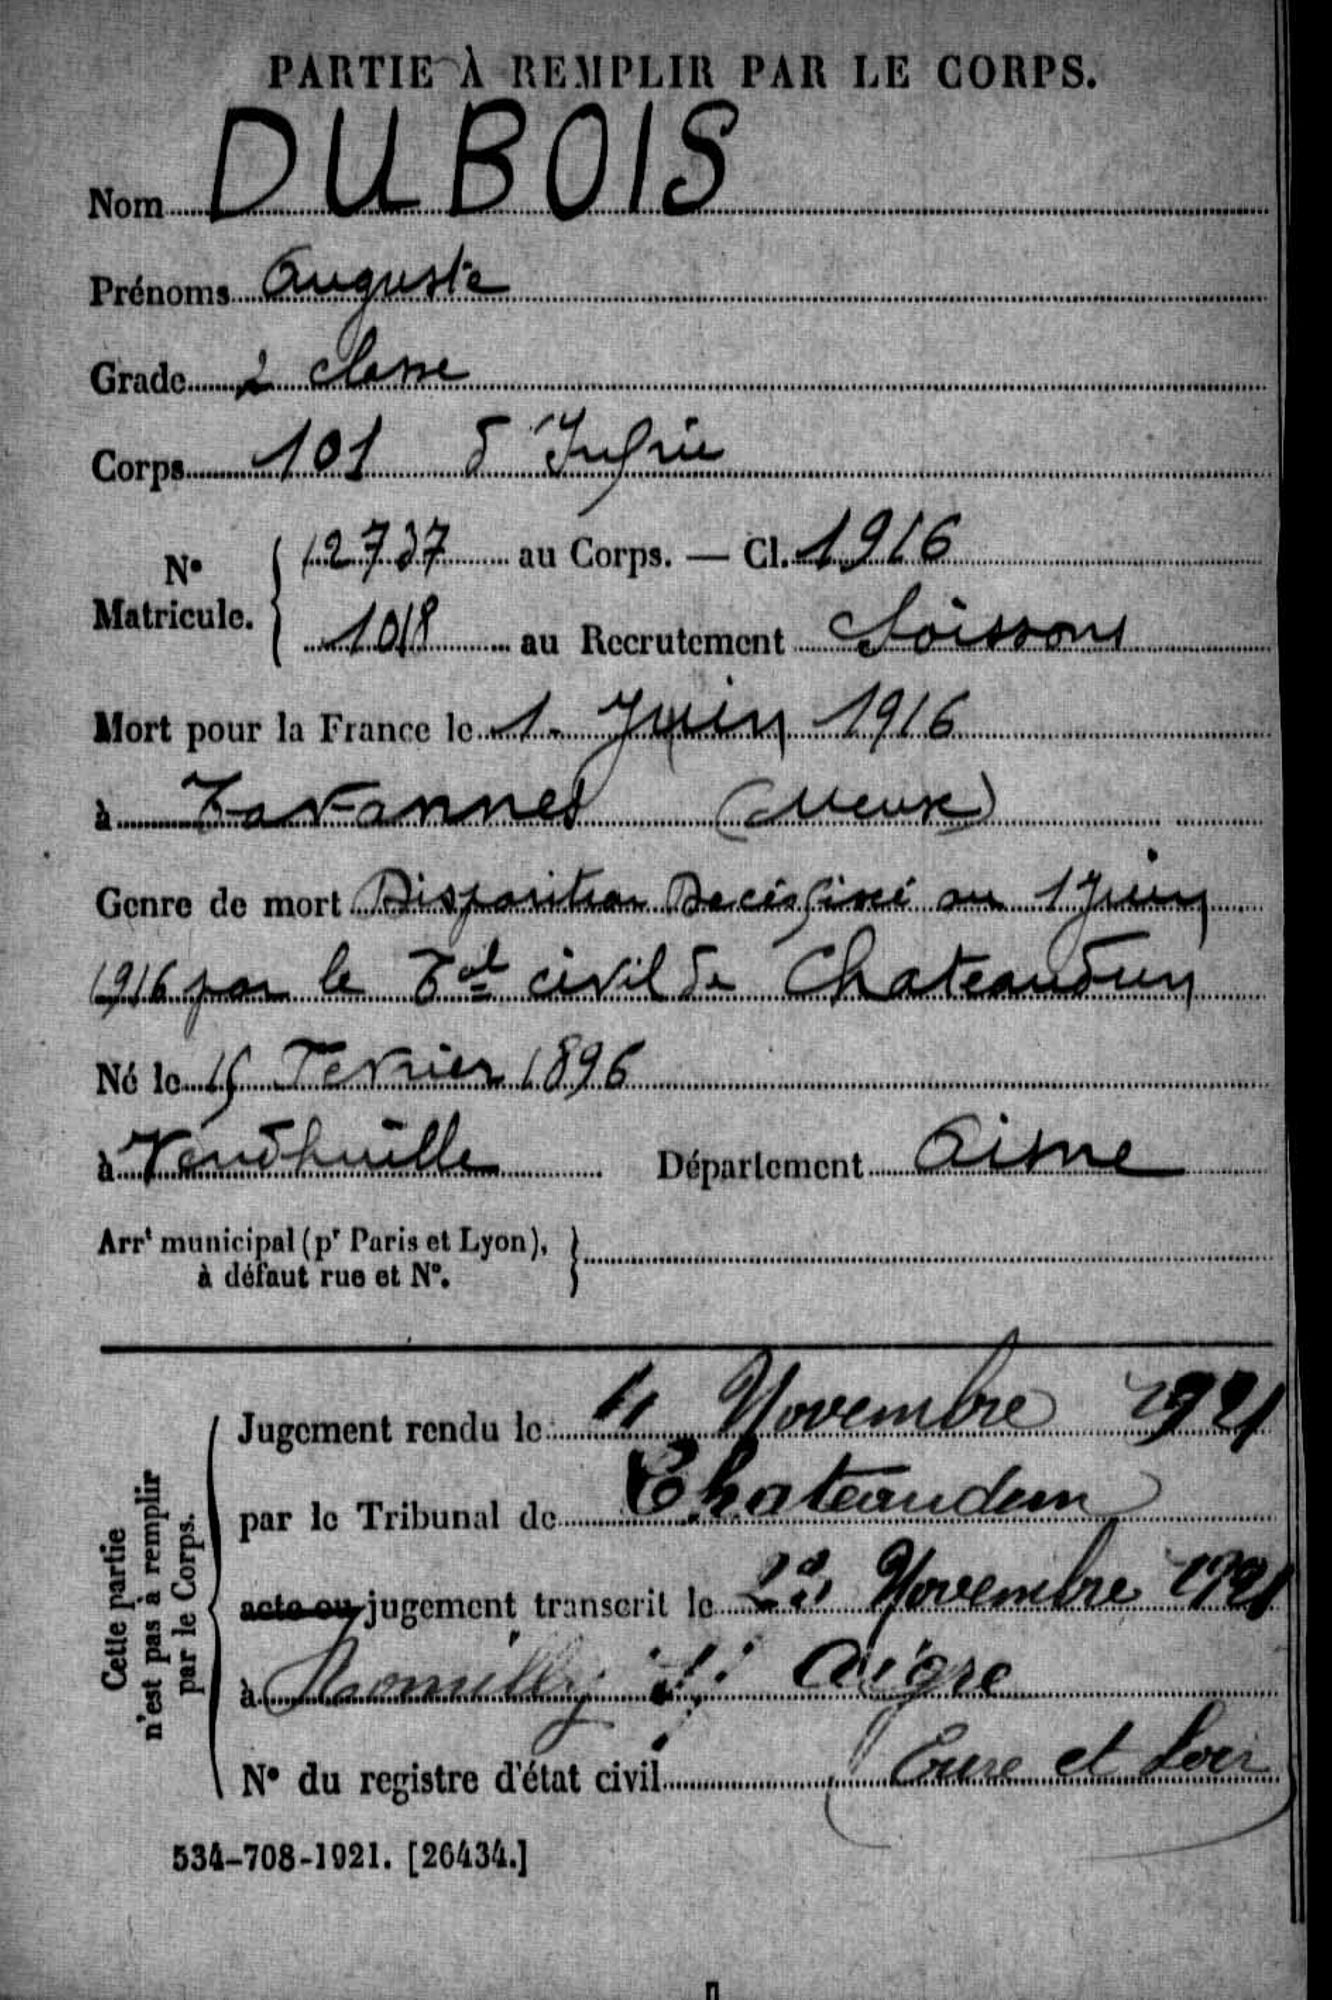 PARTIE À REMPLIR PAR LE CORPS.
Nom DUBOIS
Prénoms Auguste
Grade 2 classe
Corps 101 d'Infrie
N° Matricule. { 12737 au Corps. — Cl. 1916
1018 au Recrutement Soissons
Mort pour la France le 1. Juin 1916
à Tavannes (Meuse)
Genre de mort Disparition Décès fixé au 1 Juin
1916 par le Tal civil de Chateaudun
Né le 15 Fevrier 1896
à Vendhuille Département Aisne
Arrt municipal (pr Paris et Lyon), }
à défaut rue et N°.
Cette partie
n'est pas à remplir
par le Corps.
Jugement rendu le 11 Novembre 1921
par le Tribunal de Chateaudun
acte ou jugement transcrit le Novembre 1921
à Romilly s/ Aigre
N° du registre d'état civil (Eure et Loir)
534-708-1921. [26434.]